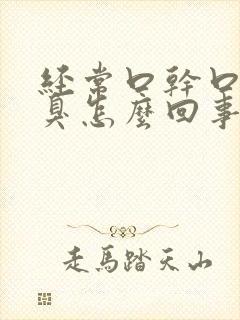 經常口幹口
臭怎麼回事
走馬踏天山